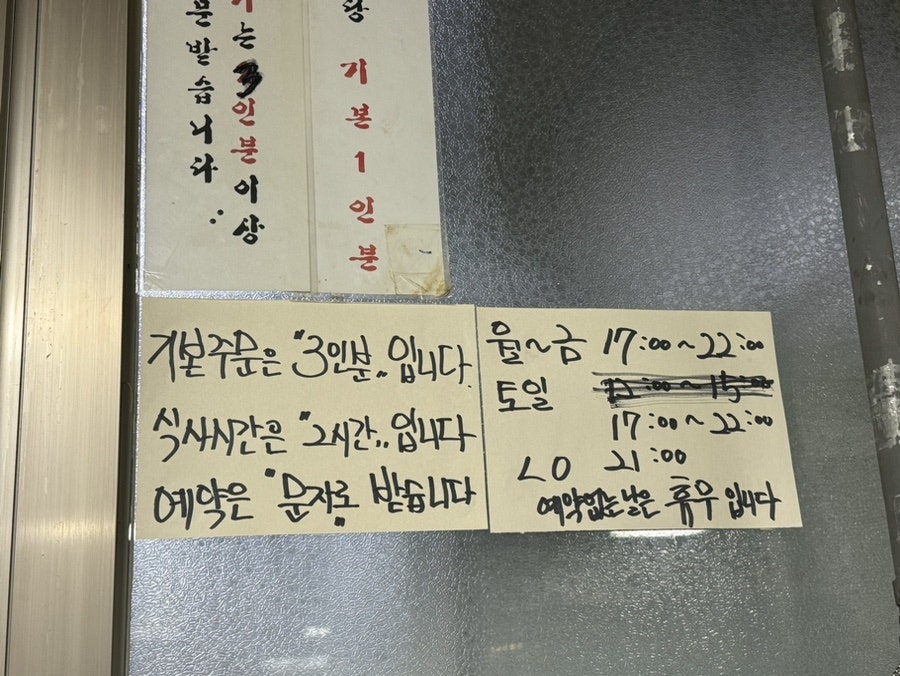 당 기본 1인분
기는 3인분이상
문받습니다.
기본주문은 "3인분" 입니다.
식사시간은 "2시간" 입니다
예약은 "문자로" 받습니다
월~금 17:00~22:00
토일 12:00~15:00
17:00~22:00
LO 21:00
예약없는날은 휴무입니다